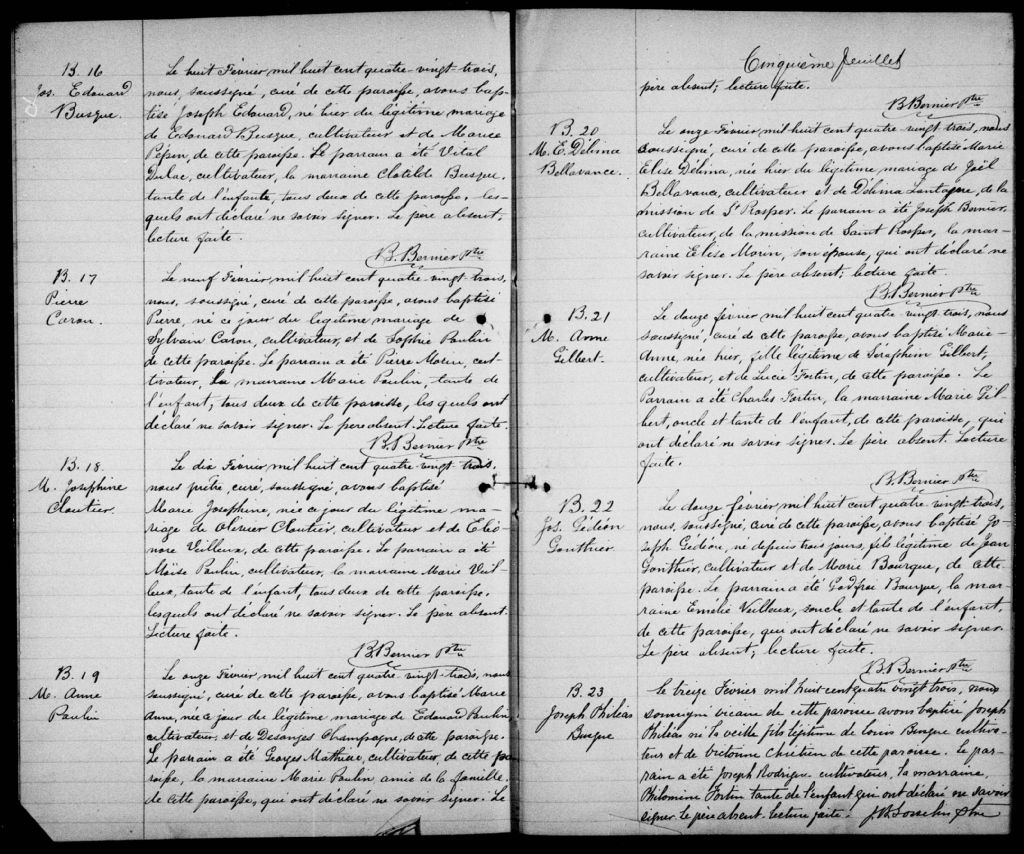 B. 16
Jos. Edouard
Busque.
Le huit Février mil huit cent quatre-vingt-trois,
nous, soussigné, curé de cette paroisse, avons bap-
tisé Joseph Edouard, né hier du légitime mariage
de Edouard Busque, cultivateur et de Marice
Pépin, de cette paroisse. Le parrain a été Vital
Dulac, cultivateur, la marraine Clotilde Busque,
tante de l'enfante, tous deux de cette paroisse, les-
quels ont déclaré ne savoir signer. Le père absent,
lecture faite.
B. Bernier Ptre
B. 17
Pierre
Caron.
Le neuf Février mil huit cent quatre-vingt-trois,
nous, soussigné, curé de cette paroisse, avons baptisé
Pierre, né ce jour du légitime mariage de
Sylvain Caron, cultivateur, et de Sophie Poulin
de cette paroisse. Le parrain a été Pierre Morin, cul-
tivateur, La marraine Marie Poulin, tante de
l'enfant, tous deux de cette paroisse, les quels ont
déclaré ne savoir signer. Le pere absent. Lecture faite.
B. Bernier Ptre
B. 18.
M. Josephine
Cloutier.
Le dix Février, mil huit cent quatre-vingt-trois,
nous prêtre, curé, soussigné, avons baptisé
Marie Josephine, née ce jour du légitime ma-
riage de Olivier Cloutier, cultivateur et de Eléo-
nore Veilleux, de cette paroisse. Le parrain a été
Moïse Poulin, cultivateur, la marraine Marie Veil-
leux, tante de l'enfant, tous deux de cette paroisse,
lesquels ont déclaré ne savoir signer. Le père absent.
Lecture faite.
B. Bernier Ptre
B. 19
M. Anne
Poulin
Le onze Février, mil huit cent quatre-vingt trois, nous
soussigné, curé de cette paroisse, avons baptisé Marie
Anne, née ce jour du légitime mariage de Edouard Poulin,
cultivateur, et de Desanges Champagne, de cette paroisse.
Le parrain a été Georges Mathieu, cultivateur, de cette pa
roisse, la marraine Marie Poulin amie de la famille.
de cette paroisse, qui ont déclaré ne savoir signer. Le
Cinquième feuillet
père absent; lecture faite.
B. Bernier Ptre
B. 20
M. E. Délima
Bellavance.
Le onze Février, mil huit cent quatre vingt trois, nous
soussigné, curé de cette paroisse, avons baptisé Marie
Elise Délima, née hier du légitime mariage de Joël
Bellavance, cultivateur et de Délima Lantagne, de la
mission de St Prosper. Le parrain a été Joseph Bernier,
cultivateur, de la mission de Saint Prosper, la mar-
raine Elise Morin, son épouse, qui ont déclaré ne
savoir signer. Le père absent; lecture faite.
B. Bernier Ptre
B. 21
M. Anne
Gilbert.
Le douze février mil huit cent quatre vingt trois, nous
soussigné, curé de cette paroisse, avons baptisé Marie-
Anne, née hier, fille légitime de Séraphin Gilbert,
cultivateur, et de Lucie Fortin, de cette paroisse. Le
Parrain a été Charles Fortin, la marraine Marie Gil-
bert, oncle et tante de l'enfant, de cette paroisse, qui
ont déclaré ne savoir signer. Le père absent. Lecture
faite.
B. Bernier Ptre
B. 22
Jos. Gédéon
Gonthier
Le douze février mil huit cent quatre vingt trois,
nous, soussigné, curé de cette paroisse, avons baptisé Jo-
seph Gedéon, né depuis trois jours, fils légitime de Jean
Gonthier, cultivateur et de Marie Bourque, de cette
paroisse. Le parrain a été Godfroi Bourque, la mar-
raine Emélie Veilleux, oncle et tante de l'enfant,
de cette paroisse, qui ont déclaré ne savoir signer.
Le père absent; lecture faite.
B. Bernier Ptre
B. 23
Joseph Philéas
Busque
Le treize Février mil huit cent quatre vingt trois, nous
soussigné vicaire de cette paroisse avons baptisé Joseph
Philéas né la veille fils légitime de Louis Busque cultiva-
teur et de Victorine Chrétien de cette paroisse. Le par-
rain a été Joseph Rodrigue cultivateur, la marraine,
Philomène Fortin tante de l'enfant qui ont déclaré ne savoir
signer. Le père absent. Lecture faite.